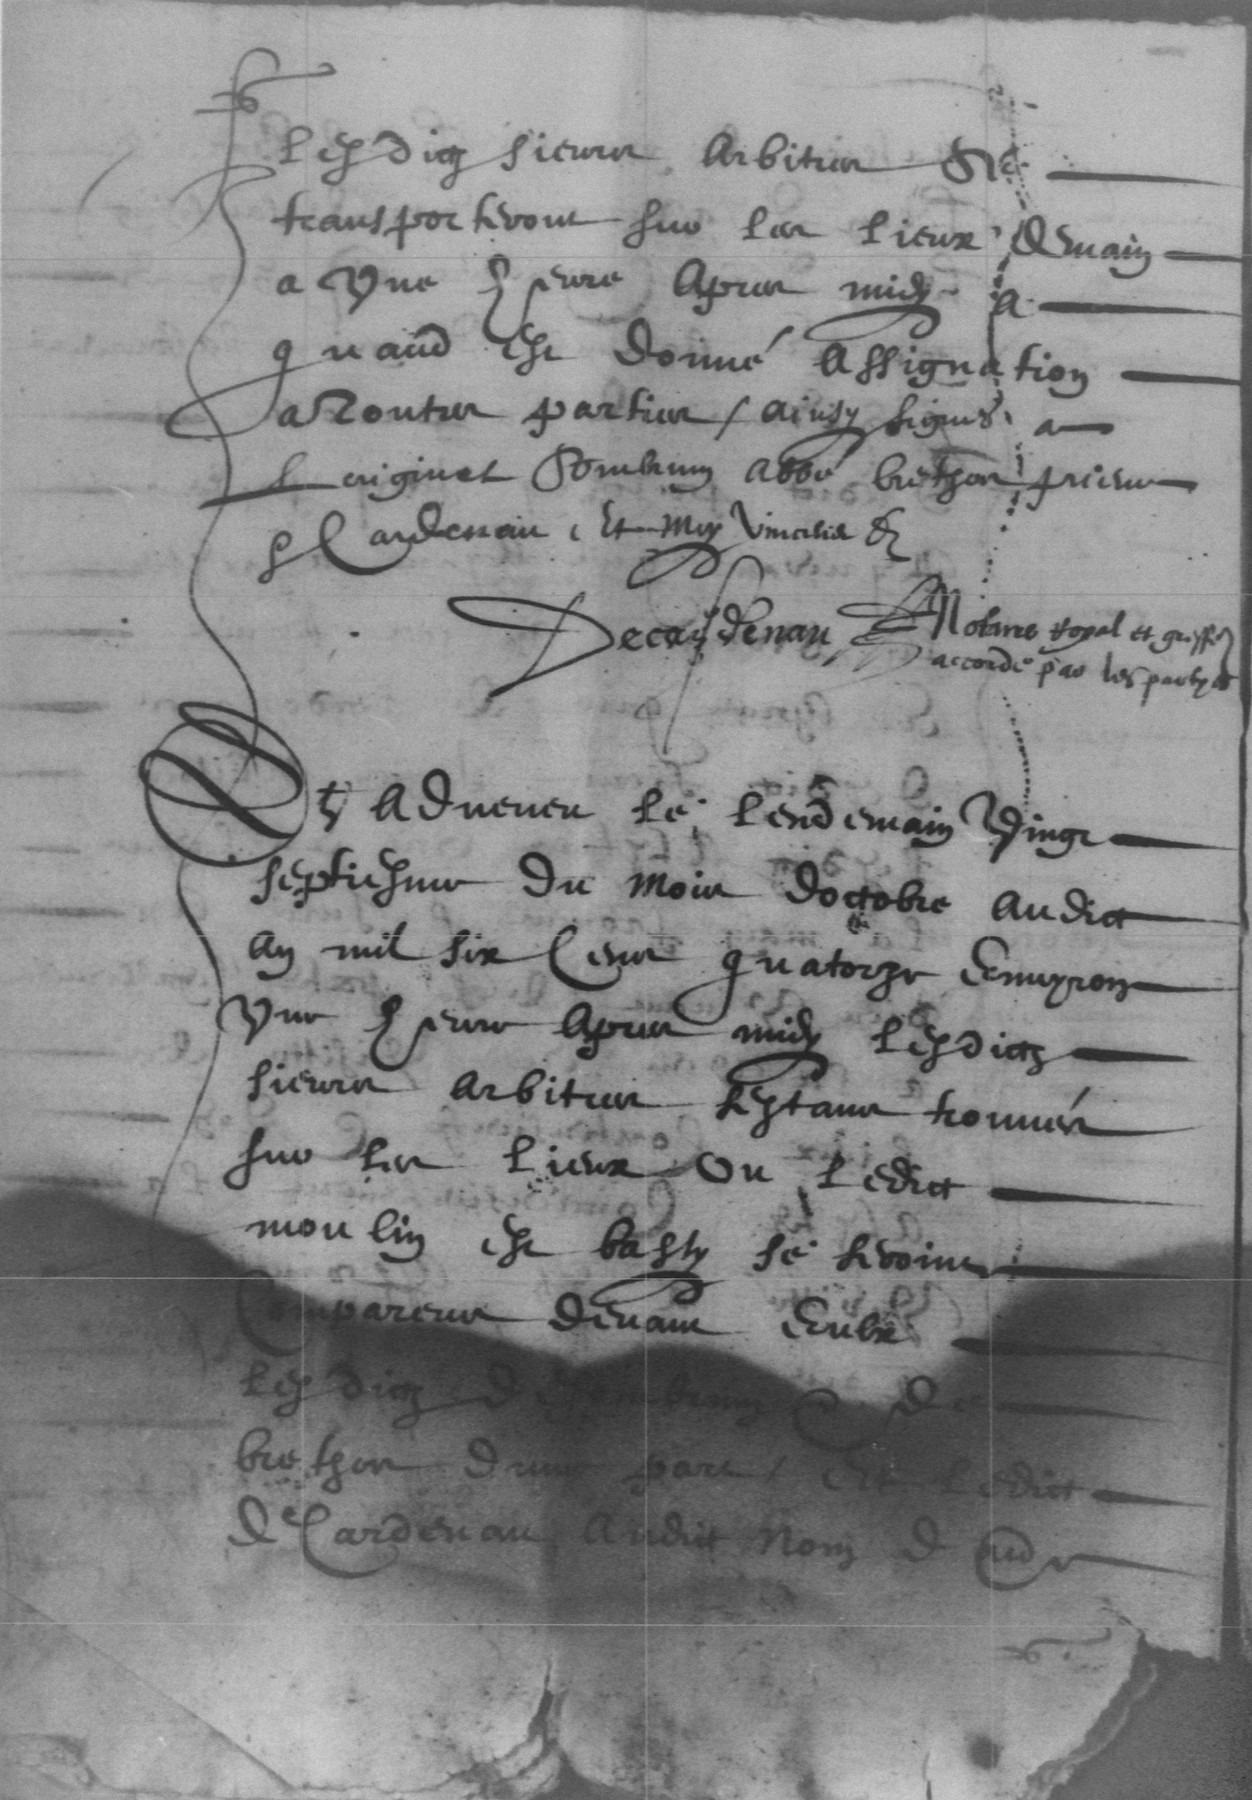 lesdictz sieurs arbitres se
transporteront sur les lieux demain
a une heure apres midy a
quand est donné assignation
a toutes parties / ainsy signés a
l original abbé brethon prieur
Cardenau et moy
Decardenau Notaire royal et greffier
accordé par les partyes
Et advenu le lendemain vingt
septiesme du mois doctobre audict
an mil six cens quatorze environ
une heure apres midy lesdictz
sieurs arbitres sestans trouvés
sur les lieux ou ledict
moulin est basty se seroint
comparens devant eulx
lesdictz de
brethon dune part / et ledict
de Cardenau audict nom d